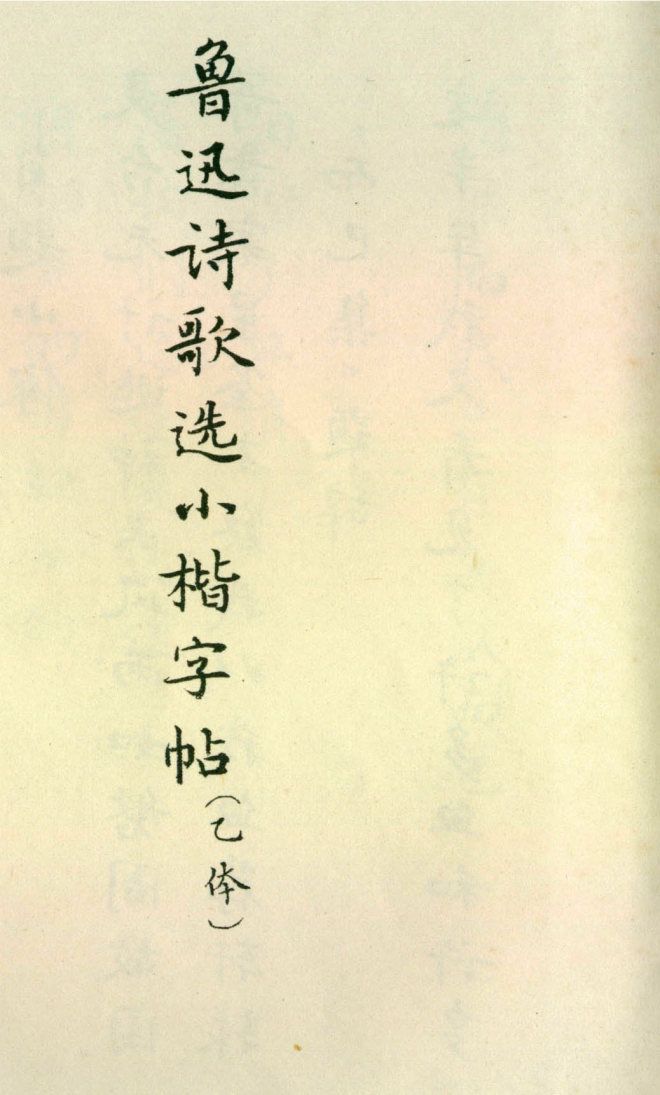 鲁迅诗歌选小楷字帖（乙体）